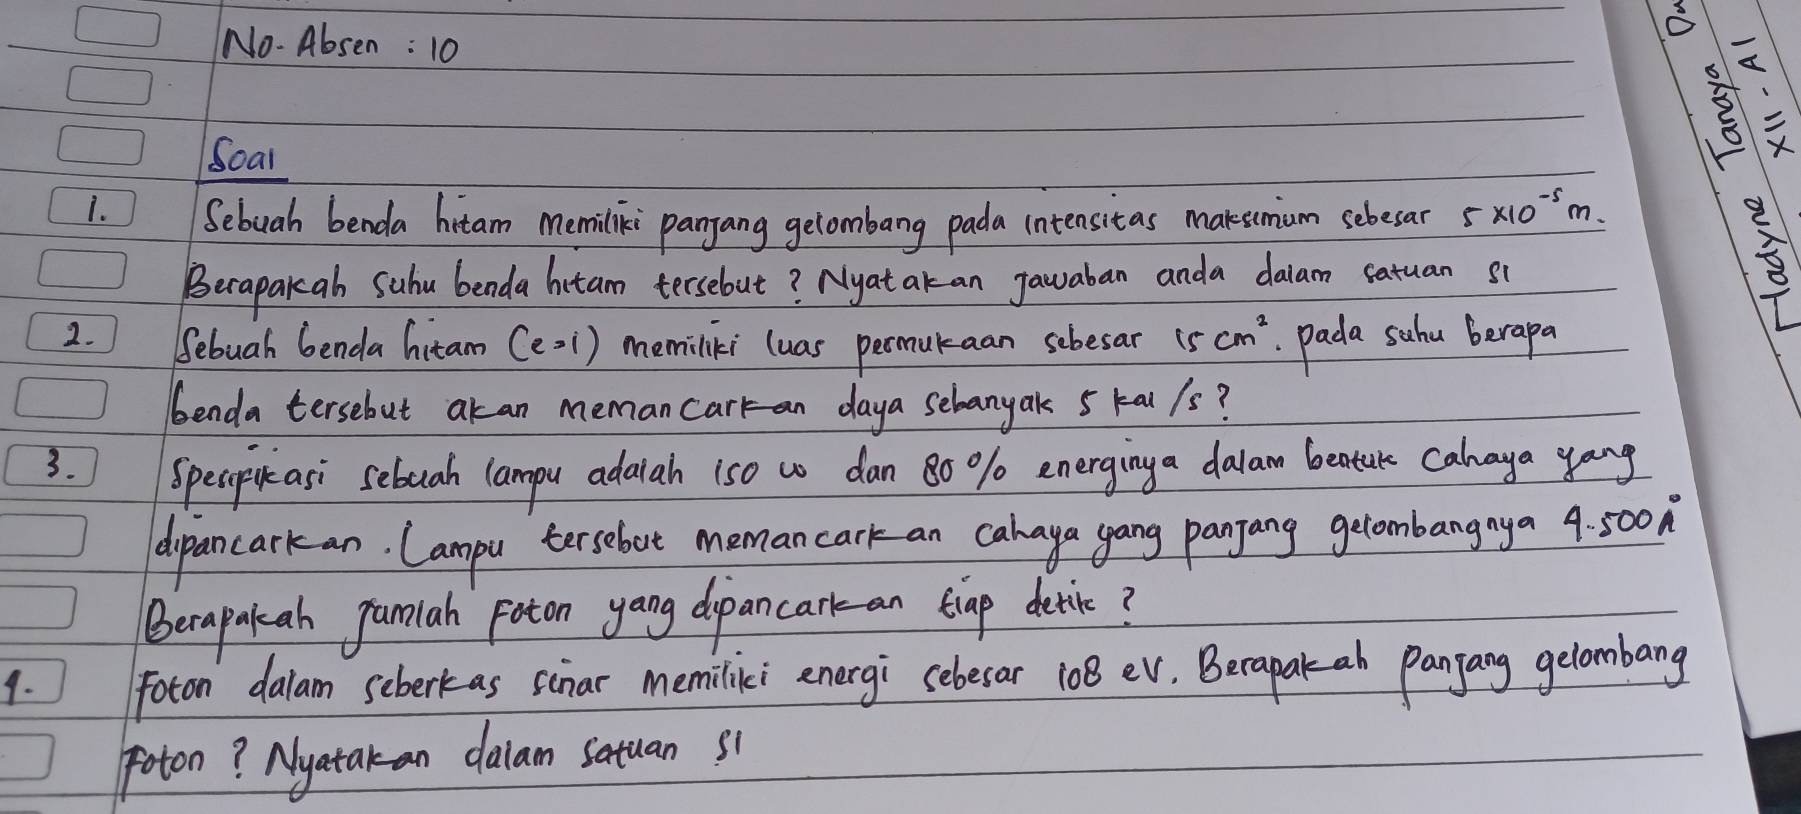 No. Absen : 10
Soal
1. Sebuah benda hitam memiliki panjang gelombang pada intensitas maksimum sebesar 5 x 10⁻⁵ m.
Berapakah suhu benda hitam tersebut? Nyatakan jawaban anda dalam satuan SI
2. Sebuah benda hitam (e=1) memiliki luas permukaan sebesar 15 cm². pada suhu berapa
benda tersebut akan memancarkan daya sebanyak 5 kal/s?
3. Spesifikasi sebuah lampu adalah 150 W dan 80% energinya dalam bentuk cahaya yang
dipancarkan. Lampu tersebut memancarkan cahaya yang panjang gelombangnya 4.500 Å
Berapakah jumlah foton yang dipancarkan tiap detik?
4. Foton dalam seberkas sinar memiliki energi sebesar 108 eV. Berapakah panjang gelombang
foton? Nyatakan dalam satuan SI
Hadyne Tanaya
XII - A1